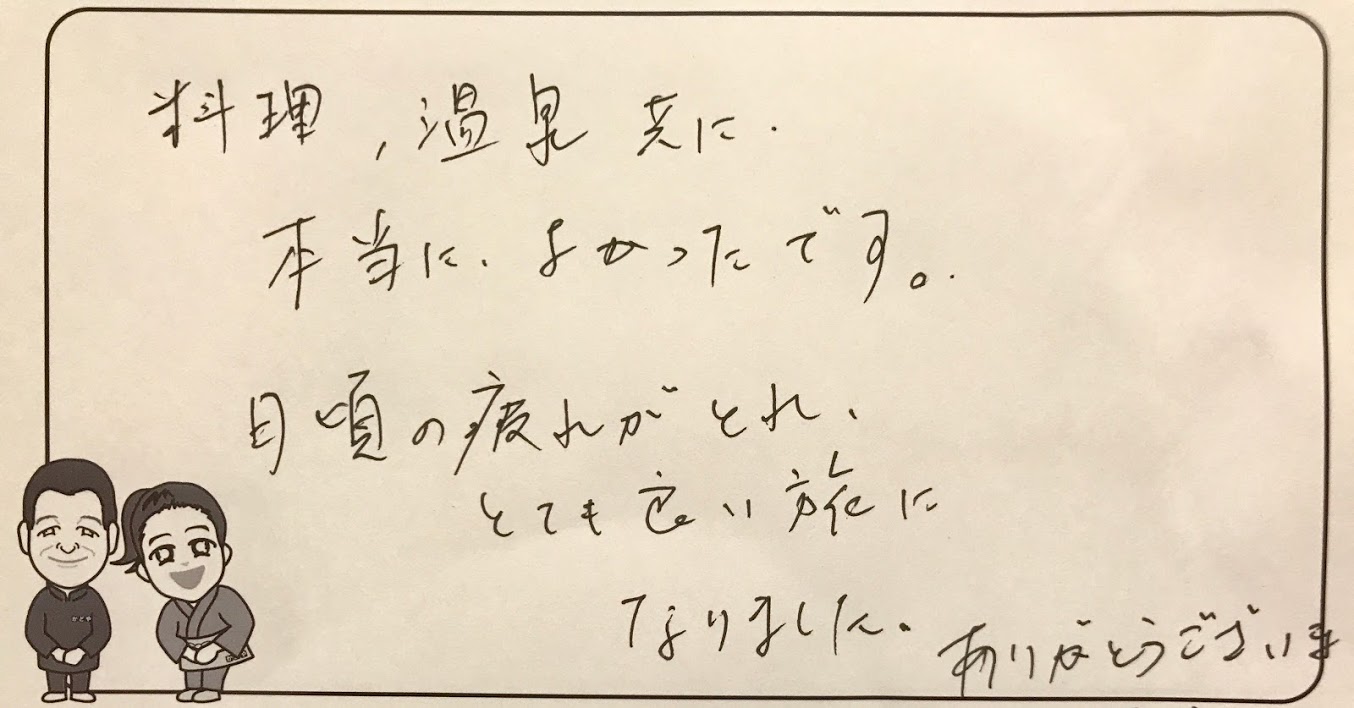 料理,温泉 共に.
本当に、よかったです。
日頃の疲れがとれ、
とても良い旅に
なりました。
ありがとうございま
かどや